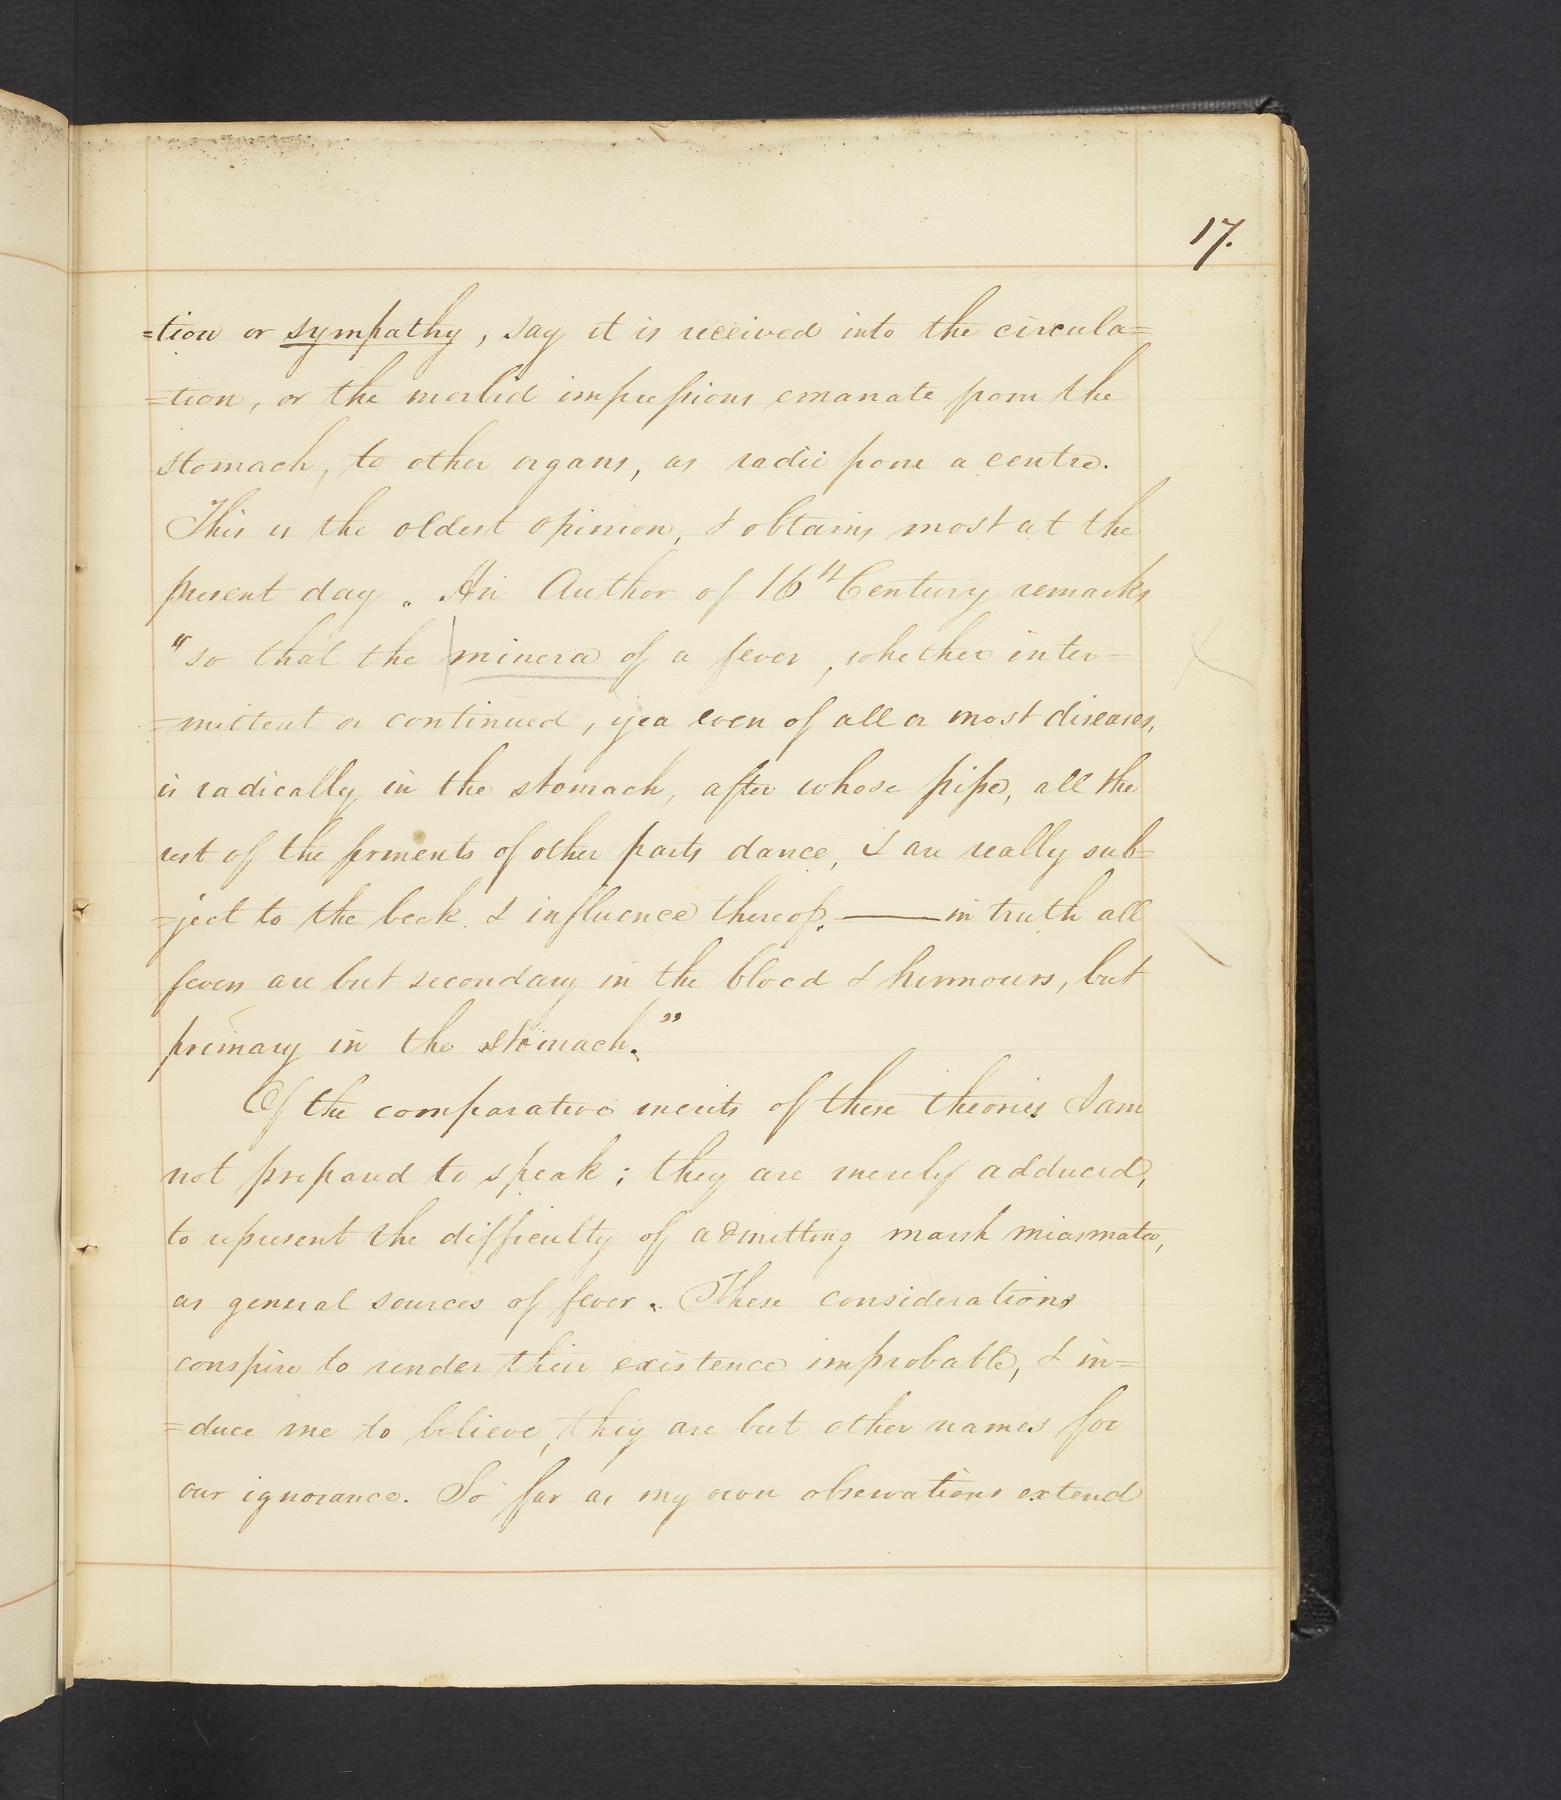 17.
=tion or sympathy, say it is received into the circula=
=tion, or the morbid impressions emanate from the
stomach, to other organs, as radii from a centre.
This is the oldest opinion, & obtains most at the
present day. An Author of 16th Century remarks
"so that the minera of a fever, whether inter-
=mittent or continued, yea even of all or most diseases,
is radically in the stomach, after whose pipe, all the
rest of the ferments of other parts dance, & are really sub=
=ject to the beck & influence thereof. —— in truth all
fevers are but secondary in the blood & humours, but
primary in the stomach."
Of the comparative merits of these theories I am
not prepared to speak; they are merely adduced,
to represent the difficulty of admitting marsh miasmata,
as general sources of fever. These considerations
conspire to render their existence improbable, & in=
=duce me to believe, they are but other names for
our ignorance. So far as my own observations extend